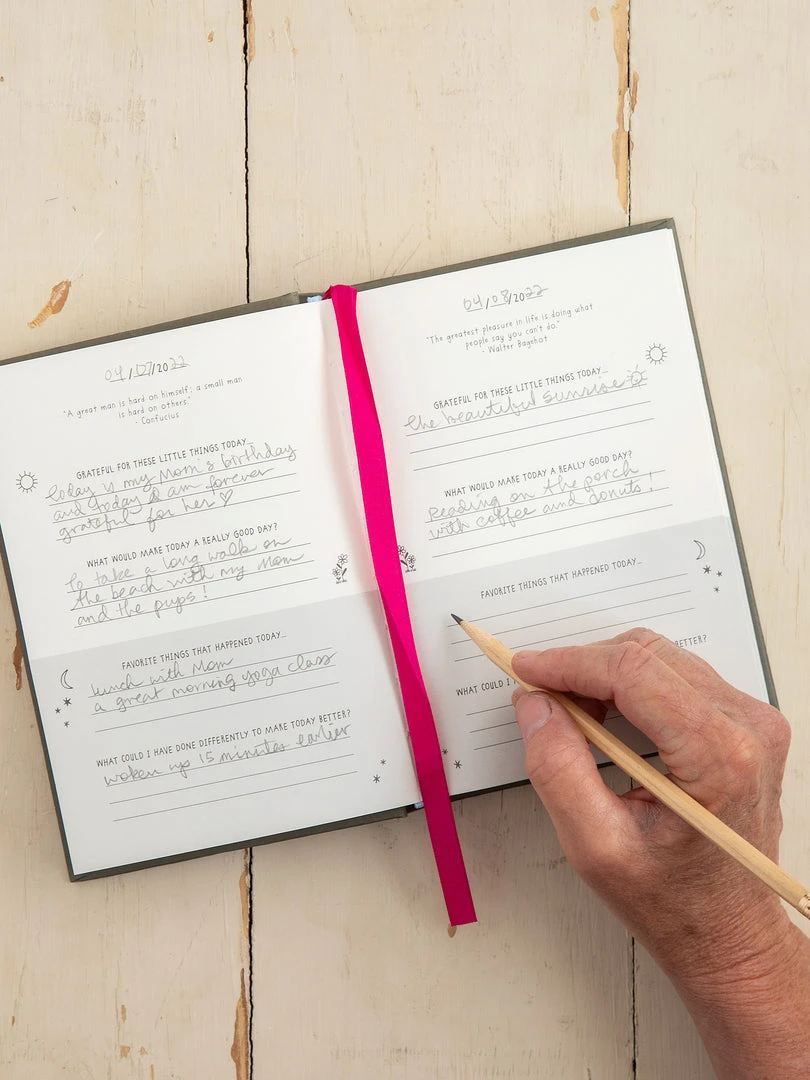 04/07/2022
"A great man is hard on himself; a small man
is hard on others."
- Confucius
GRATEFUL FOR THESE LITTLE THINGS TODAY...
Today is my Mom's birthday
and today I am forever
grateful for her ♡
WHAT WOULD MAKE TODAY A REALLY GOOD DAY?
To take a long walk on
the beach with my Mom
and the pups!
FAVORITE THINGS THAT HAPPENED TODAY...
lunch with Mom
a great morning yoga class
WHAT COULD I HAVE DONE DIFFERENTLY TO MAKE TODAY BETTER?
woken up 15 minutes earlier
04/08/2022
"The greatest pleasure in life is doing what
people say you can't do."
- Walter Bagehot
GRATEFUL FOR THESE LITTLE THINGS TODAY...
the beautiful sunrise
WHAT WOULD MAKE TODAY A REALLY GOOD DAY?
Reading on the porch
with coffee and donuts!
FAVORITE THINGS THAT HAPPENED TODAY...
WHAT COULD I BETTER?